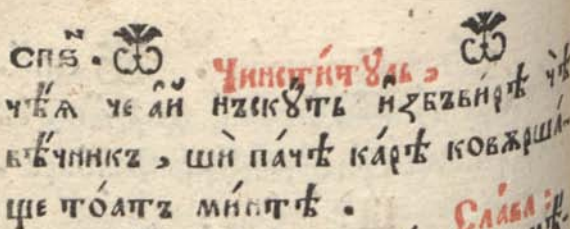 спꙋ҆ⷩ. Ѿ Чинсти́тꙋль, Ѿ
чѣ́ꙗ че а҆й нъскꙋ́ть и҆ꙁбъви́рѣ чѣ
вѣ́чникъ, шѝ па́че ка́рѣ ковѫрша́-
ще то́атъ ми́нтѣ.
Сла́ва: